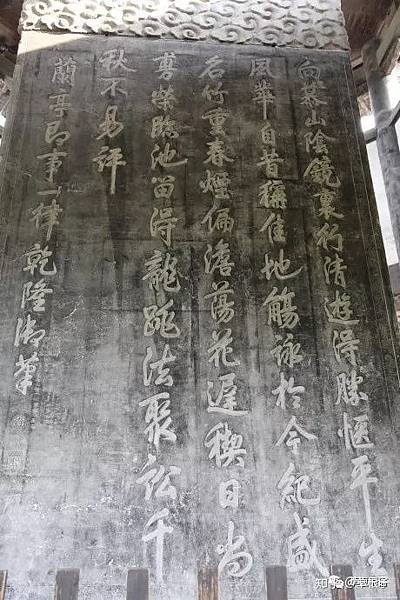 向慕山陰鏡裏行清遊得勝愜平生
風華自昔稱佳地觴詠於今紀盛
名竹重春煙偏澹蕩花遲禊日尚
旉榮臨池留得龍跳法聚訟千
秋不易評
蘭亭即事一律乾隆御筆
知乎